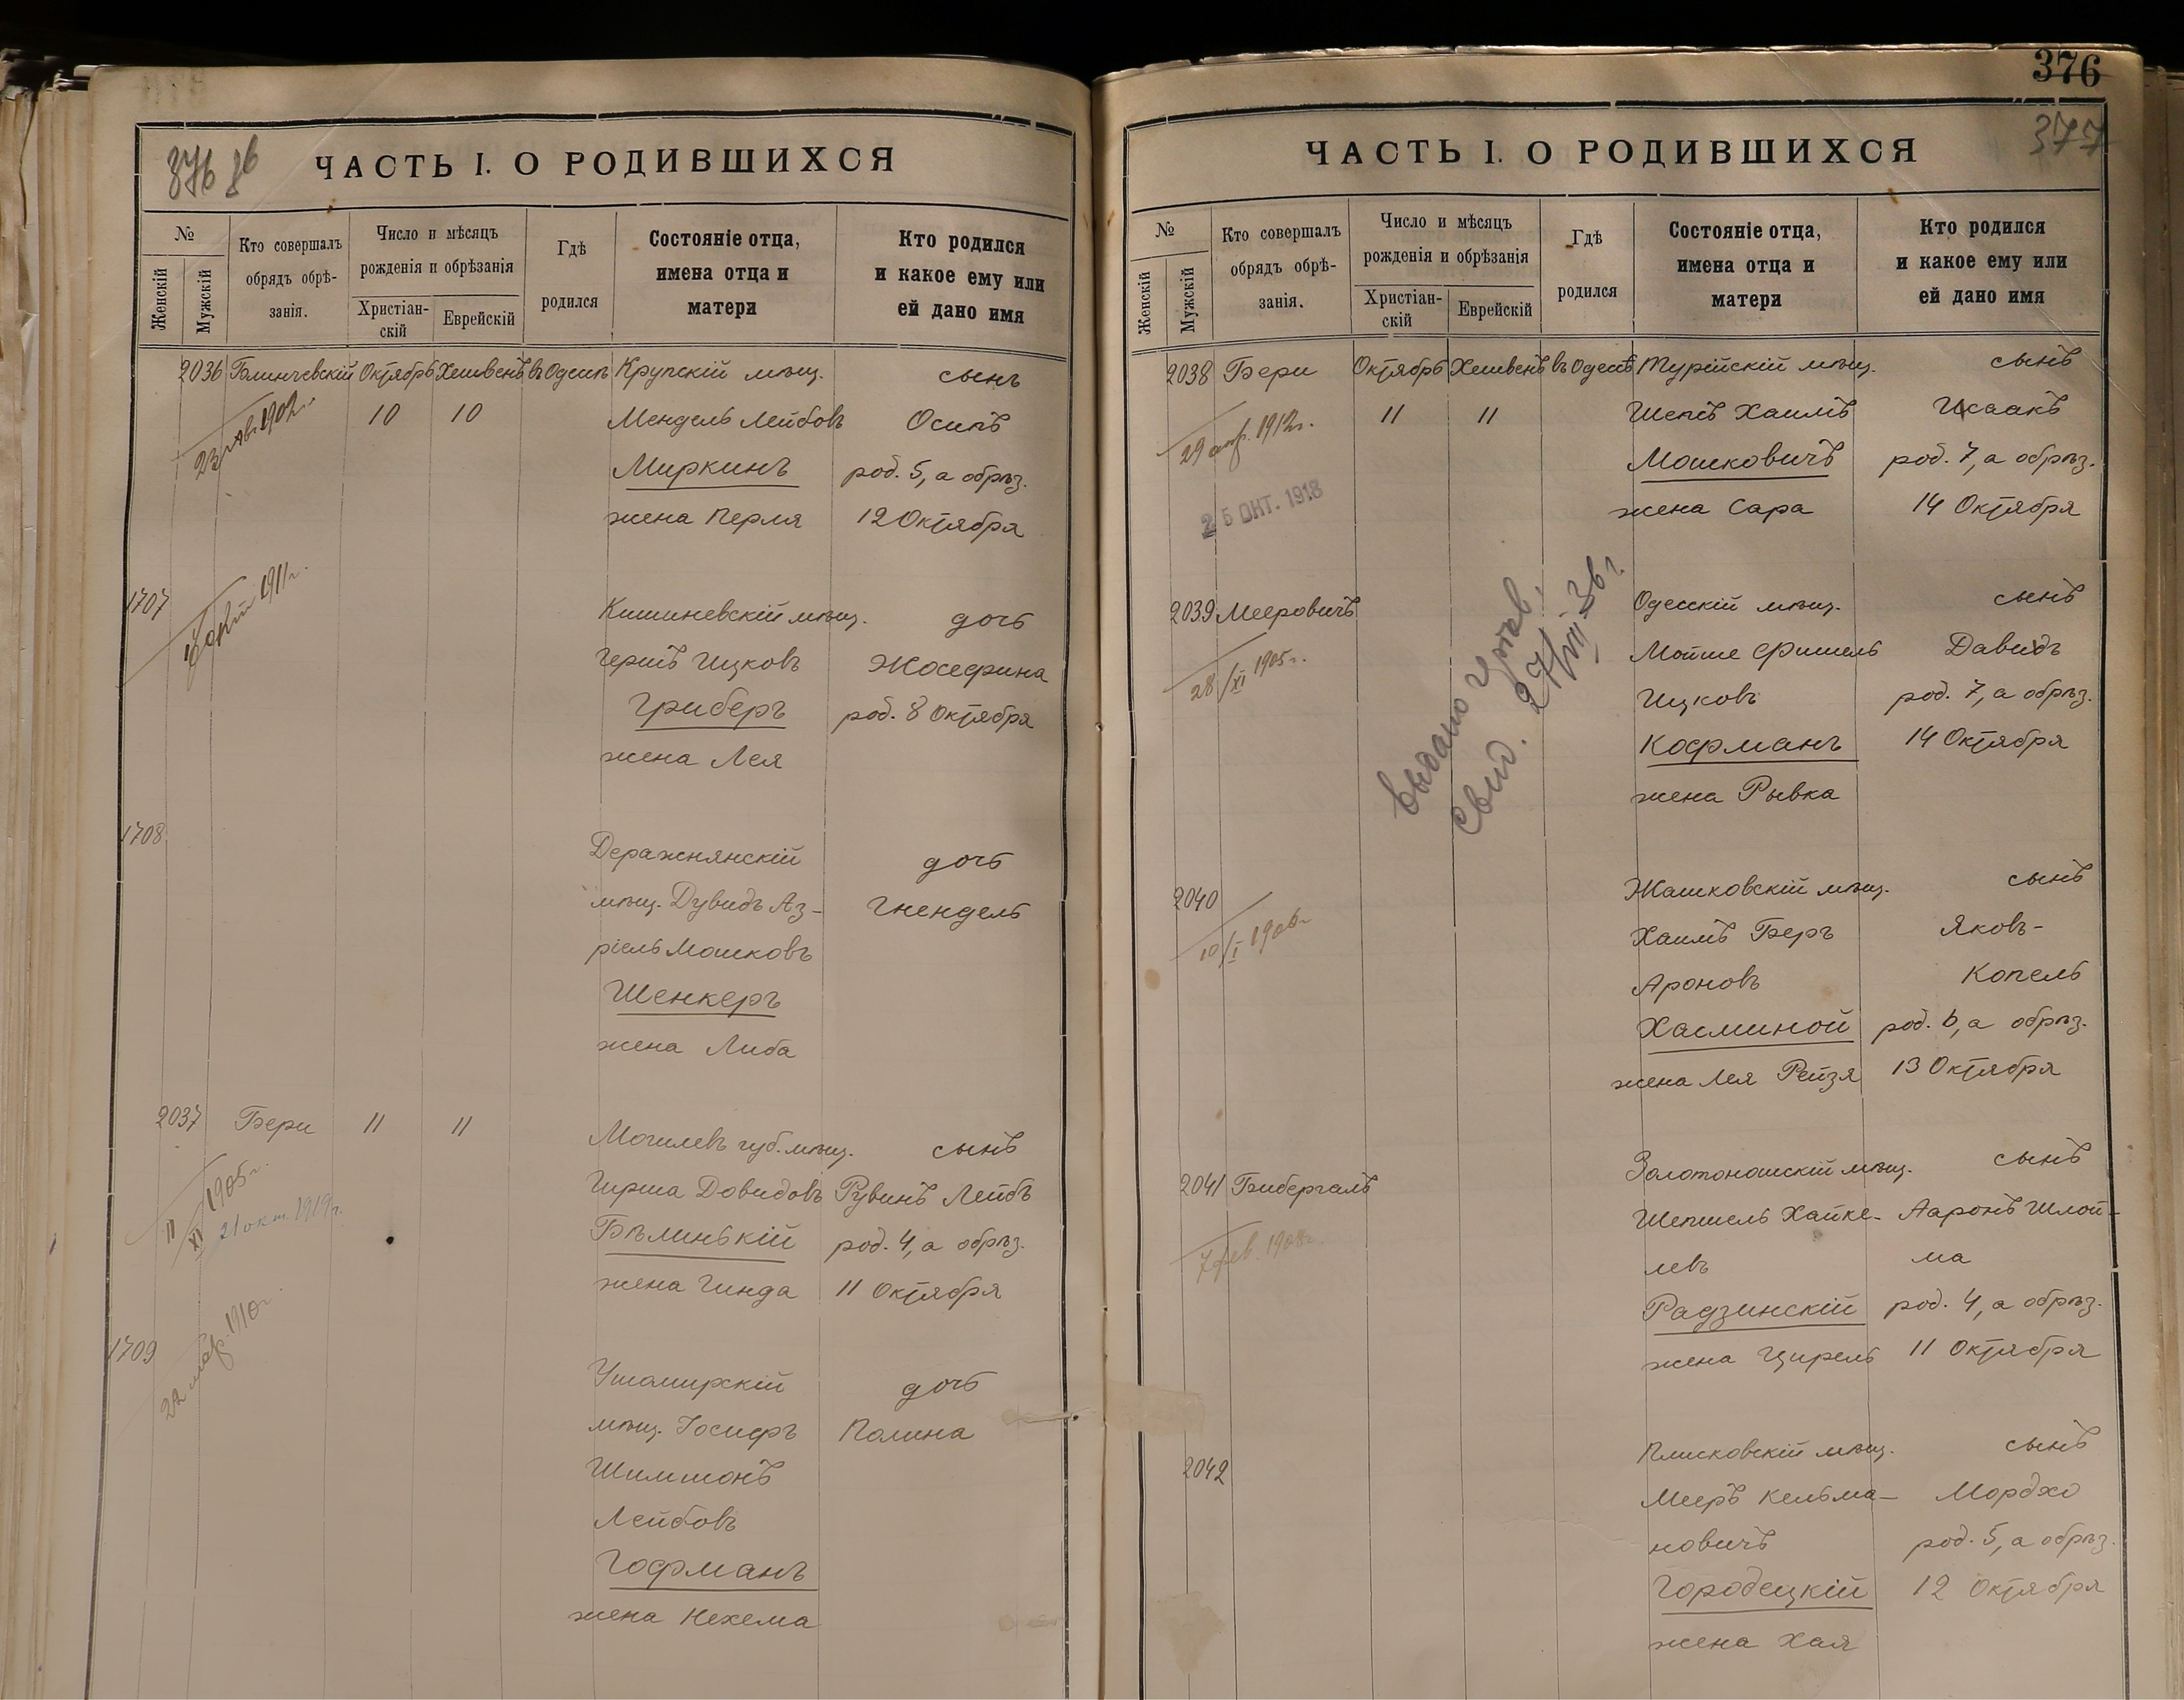 376 об
ЧАСТЬ I. О РОДИВШИХСЯ
№
Женскій
Мужскій
Кто совершалъ
обрядъ обрѣ-
занія.
Число и мѣсяцъ
рожденія и обрѣзанія
Христіан-
скій
Еврейскій
Гдѣ
родился
Состояніе отца,
имена отца и
матери
Кто родился
и какое ему или
ей дано имя
2036 Блинчевскій Октябрь Хешвенъ въ Одессѣ Крупскій мѣщ. сынъ
10 10 Мендель Лейбовъ Осипъ
Миркинъ род. 5, а обрѣз.
жена Перля 12 Октября
1707 Кишиневскій мѣщ. дочь
1911г.
Гершъ Ицковъ Жосефина
Гриберъ род. 8 Октября
жена Лея
1708
Деражнянскій дочь
мѣщ. Дувидъ Аз- Гнендель
ріель Мошковъ
Шенкеръ
жена Либа
2037 Бери 11 11 Могилевъ губ. мѣщ. сынъ
Гирша Довидовъ Рувинъ Лейбъ
11/XI 1905г.
21 окт. 1919г.
Бѣлинькій род. 4, а обрѣз.
жена Гинда 11 Октября
1709
22 мар. 1910г.
Ушомирскій дочь
мѣщ. Іосифъ Полина
Шимшонъ
Лейбовъ
Гофманъ
жена Нехема
376
377
ЧАСТЬ I. О РОДИВШИХСЯ
№
Женскій
Мужскій
Кто совершалъ
обрядъ обрѣ-
занія.
Число и мѣсяцъ
рожденія и обрѣзанія
Христіан-
скій
Еврейскій
Гдѣ
родился
Состояніе отца,
имена отца и
матери
Кто родился
и какое ему или
ей дано имя
2038 Бери Октябрь Хешвенъ въ Одессѣ Турійскій мѣщ. сынъ
11 11 Шепсъ Хаимъ Исаакъ
29 апр. 1912г.
Мошковичъ род. 7, а обрѣз.
25 ОКТ. 1918
жена Сара 14 Октября
2039 Мееровичъ Одесскій мѣщ. сынъ
28/XI 1905г.
Мойше Фишель Давидъ
Ицковъ род. 7, а обрѣз.
Кофманъ 14 Октября
жена Рывка
Выдано
свид. 27/VIII-36г.
2040 Жашковскій мѣщ. сынъ
10/I 1906г
Хаимъ Беръ Яковъ-
Ароновъ Копель
Хасминой род. 6, а обрѣз.
жена Лея Рейзя 13 Октября
2041 Бибергалъ Золотоношскій мѣщ. сынъ
Шепшель Хайке- Ааронъ Шлой-
7 фев. 1908г.
левъ ма
Радзинскій род. 4, а обрѣз.
жена Цирель 11 Октября
2042 Плисковскій мѣщ. сынъ
Мееръ Кельма- Мордхо
новичъ род. 5, а обрѣз.
Городецкій 12 Октября
жена Хая